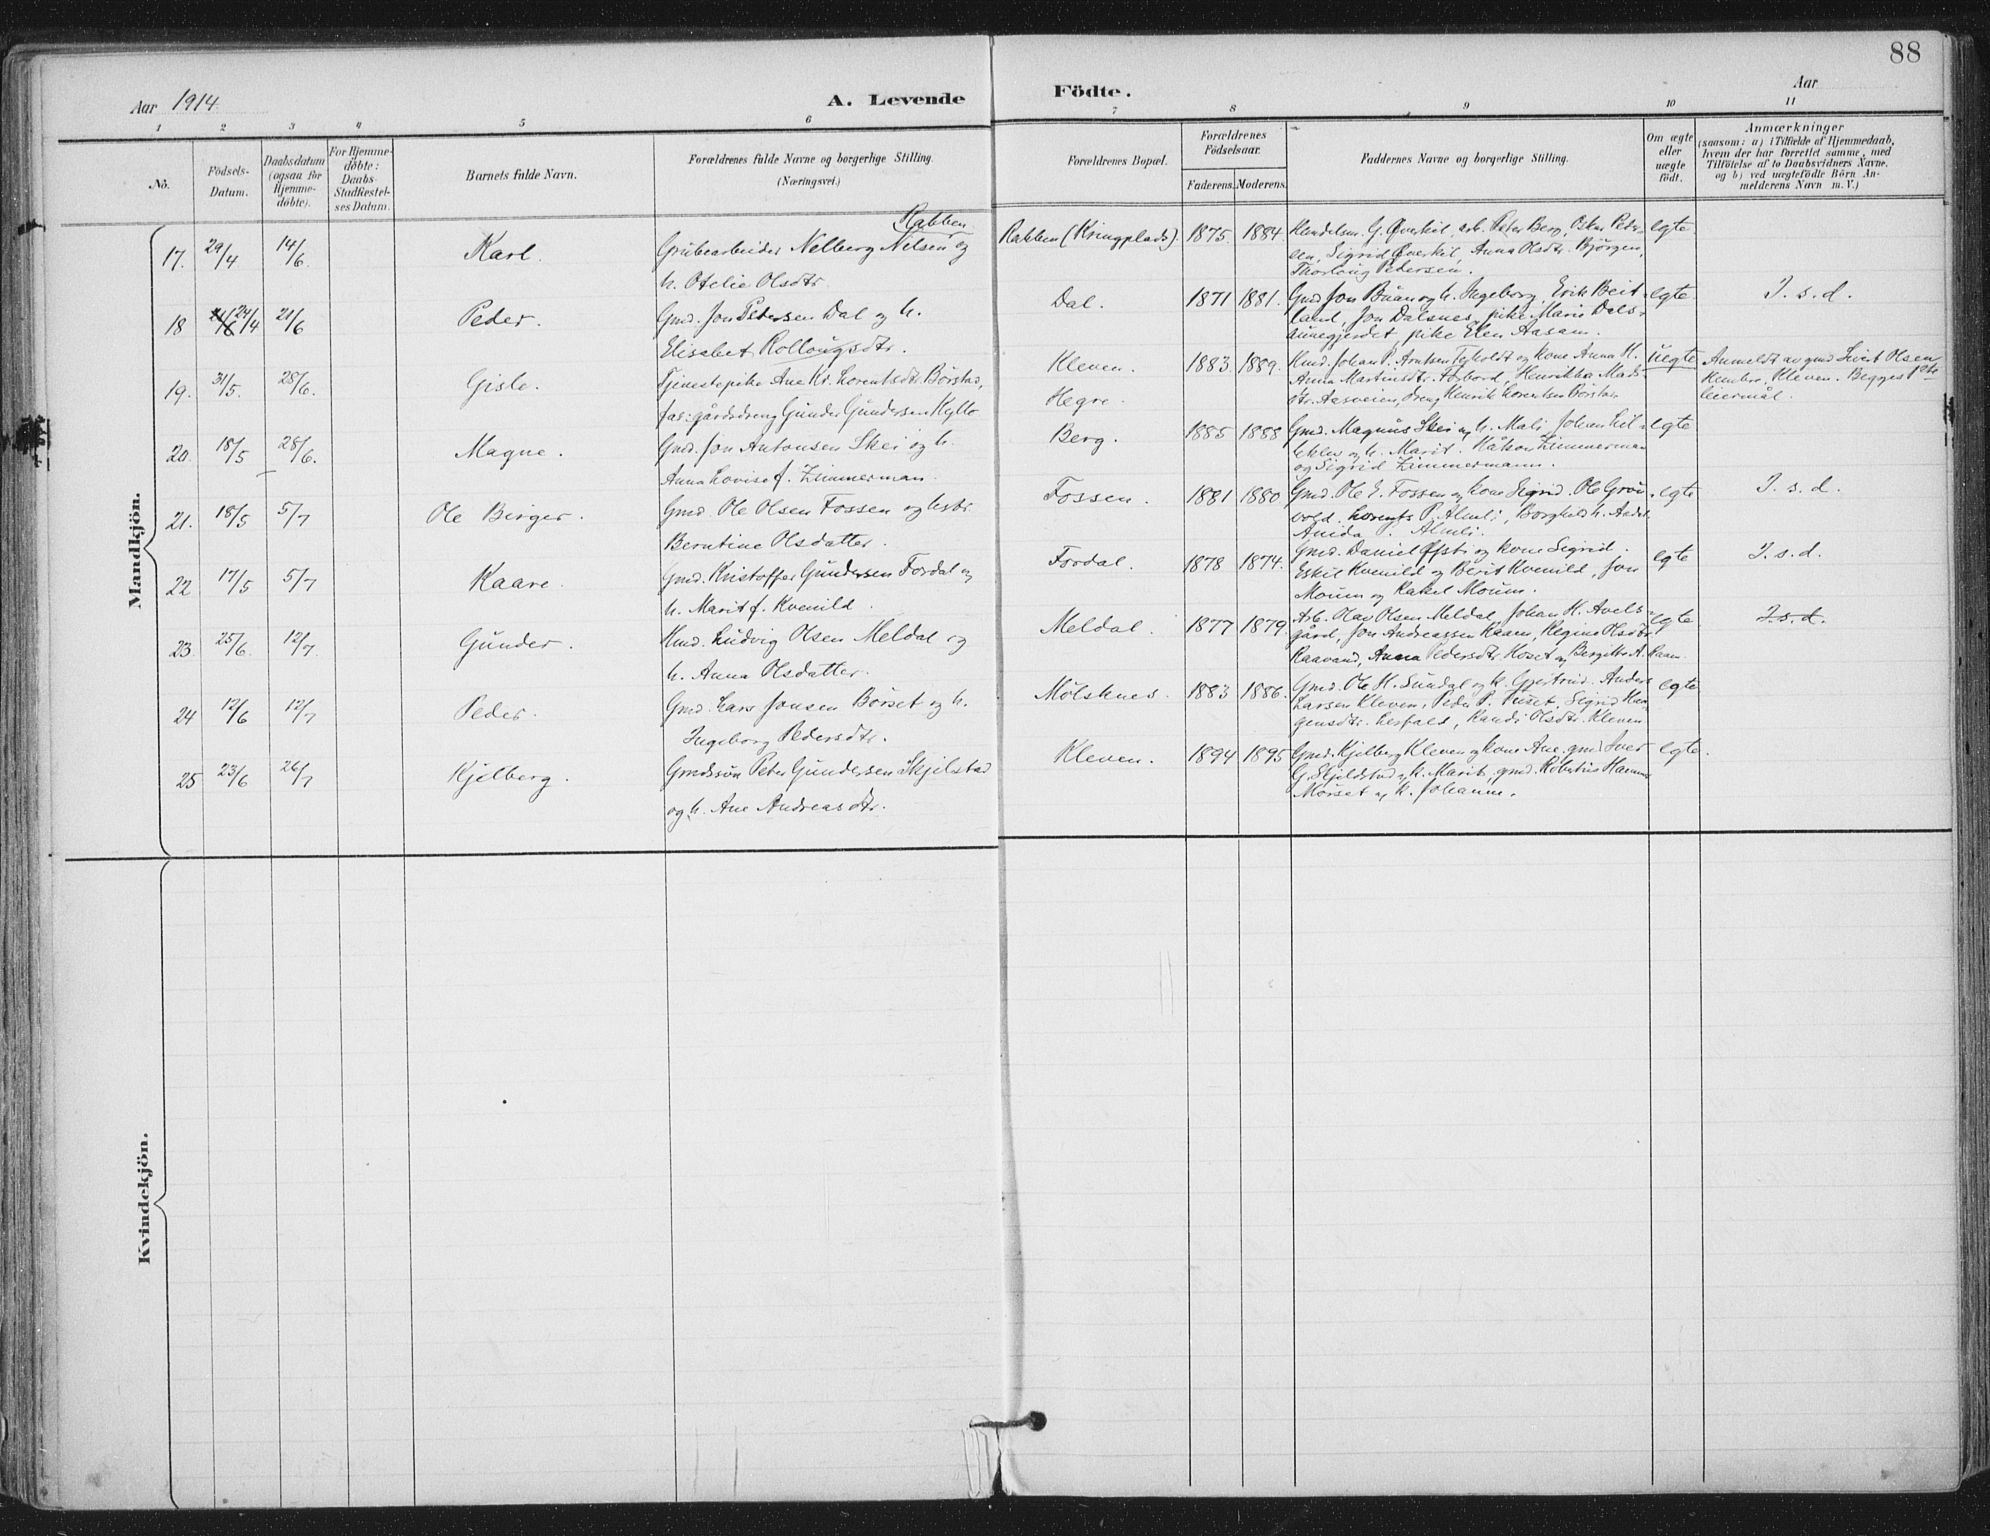 88
Aar 1914
A. Levende Födte.
Aar
1 2 3 4 5 6 7 8 9 10 11
No.
Födsels-
Datum.
Daabsdatum
(ogsaa for
Hjemme-
döbte).
For Hjemme-
döbte:
Daabs-
Stadfæstel-
ses Datum.
Barnets fulde Navn.
Forældrenes fulde Navne og borgerlige Stilling.
(Næringsvei.)
Forældrenes Bopæl.
Forældrenes
Födselsaar.
Faderens. Moderens.
Faddernes Navne og borgerlige Stilling.
Om ægte
eller
uægte
födt.
Anmærkninger
(saasom: a) i Tilfælde af Hjemmedaab,
hvem der har forrettet samme, med
Tilföielse af to Daabsvidners Navne.
og b) ved uægtefödte Börn An-
melderens Navn m. V.)
Mandkjön.
Rabben
17. 29/4 14/6 Karl. Grubearbeider Nelberg Nelsen og
h. Otelie Olsdtr
Rabben (Kringplads). 1875. 1884. G. Øverkil, arb. Peter Berg, Oskar Peder-
sen, Sigrid Øverkil, Anna Olsdtr. Bjørgen,
Thorloug Pedersen.
egte
18 24/4 21/6 Peder. Gmd. Jon Pedersen Dal og h.
Elisabet Rollougsdtr.
Dal. 1871 1881. Gmd Jon Buan og h. Ingeborg, Erik Beit-
land, Jon Dalsnes, pike Marie Dals-
aunegjerdet, pike Elen Aasam.
egte. I. s. d.
19. 31/5. 28/6. Gisle. Tjenestepike Ane Kr. Lorentsdtr. Børstad,
far: gårdsdreng Gunder Gundersen Kyllo
Kleven.
Hegre.
1883. 1889. Johan P. Arntsen og kone Anna H.
Anna Martinsdtr. Forbord, Henrikka Mads-
dtr. Aasveien, dreng Henrik Lorentsen Børstad
uegte Anmeldt av gmd Sivert Olsen
Kleven. Begges 1ste
leiermål.
20. 18/5 28/6. Magne. Gmd. Jon Antonsen Skei og h.
Anna Lovise f. Zimmerman.
Berg. 1885 1888 Gmd. Magnus Skei og h. Mali, Johan Lil-
leklev og h. Marit. Håkon Zimmerman
og Sigrid Zimmermann.
egte
21. 18/5 5/7 Ole Birger. Gmd. Ole Olsen Fossen og hstr.
Berntine Olsdatter.
Fossen. 1881 1880 Gmd. Ole E. Fossen og kone Sigrid. Ole Grøn-
vold. Lorents P. Almli, Borghild h.
Anida P. Almli.
egte I. s. d.
22 17/5 5/7 Kaare. Gmd. Kristoffer Gundersen Fordal og
h. Marit f. Kvenild.
Fordal. 1878 1874. Gmd. Daniel Øfsti og kone Sigrid.
Eskil Kvenild og Berit Kvenild, Jon
Moum og Rakel Moum.
egte I. s. d.
23. 25/6. 12/7. Gunder. Hmd. Ludvig Olsen Meldal og
h. Anna Olsdatter.
Meldal. 1877 1879. Arb. Olav Olsen Meldal, Johan H. Avels-
gård, Jon Andreassen Raaen, Regine Olsdtr
Raavand, Anna Pedersdtr. Hoset og Bergitte A. Raaen
egte I. s. d.
24 12/6 12/7 Peder. Gmd. Lars Jonsen Børset og h.
Ingeborg Pedersdtr.
Mølsknes. 1883 1886. Gmd. Ole H. Sundal og h. Gjertrud. Anders
Larsen Kleven, Peder P. Tuset, Sigrid Haa-
gensdtr. Lerfald, Randi Olsdtr. Kleven.
egte
25 23/6 26/7 Kjelberg. Gmdssøn Peter Gundersen Skjelstad
og h. Ane Andreasdtr.
Kleven. 1894 1895 Gmd. Kjelberg Kleven og kone Ane. gmd Iver
G. Skjeldstad og k. Marit, gmd. Robertus
Morset og k. Johanne.
egte.
Kvindekjön.